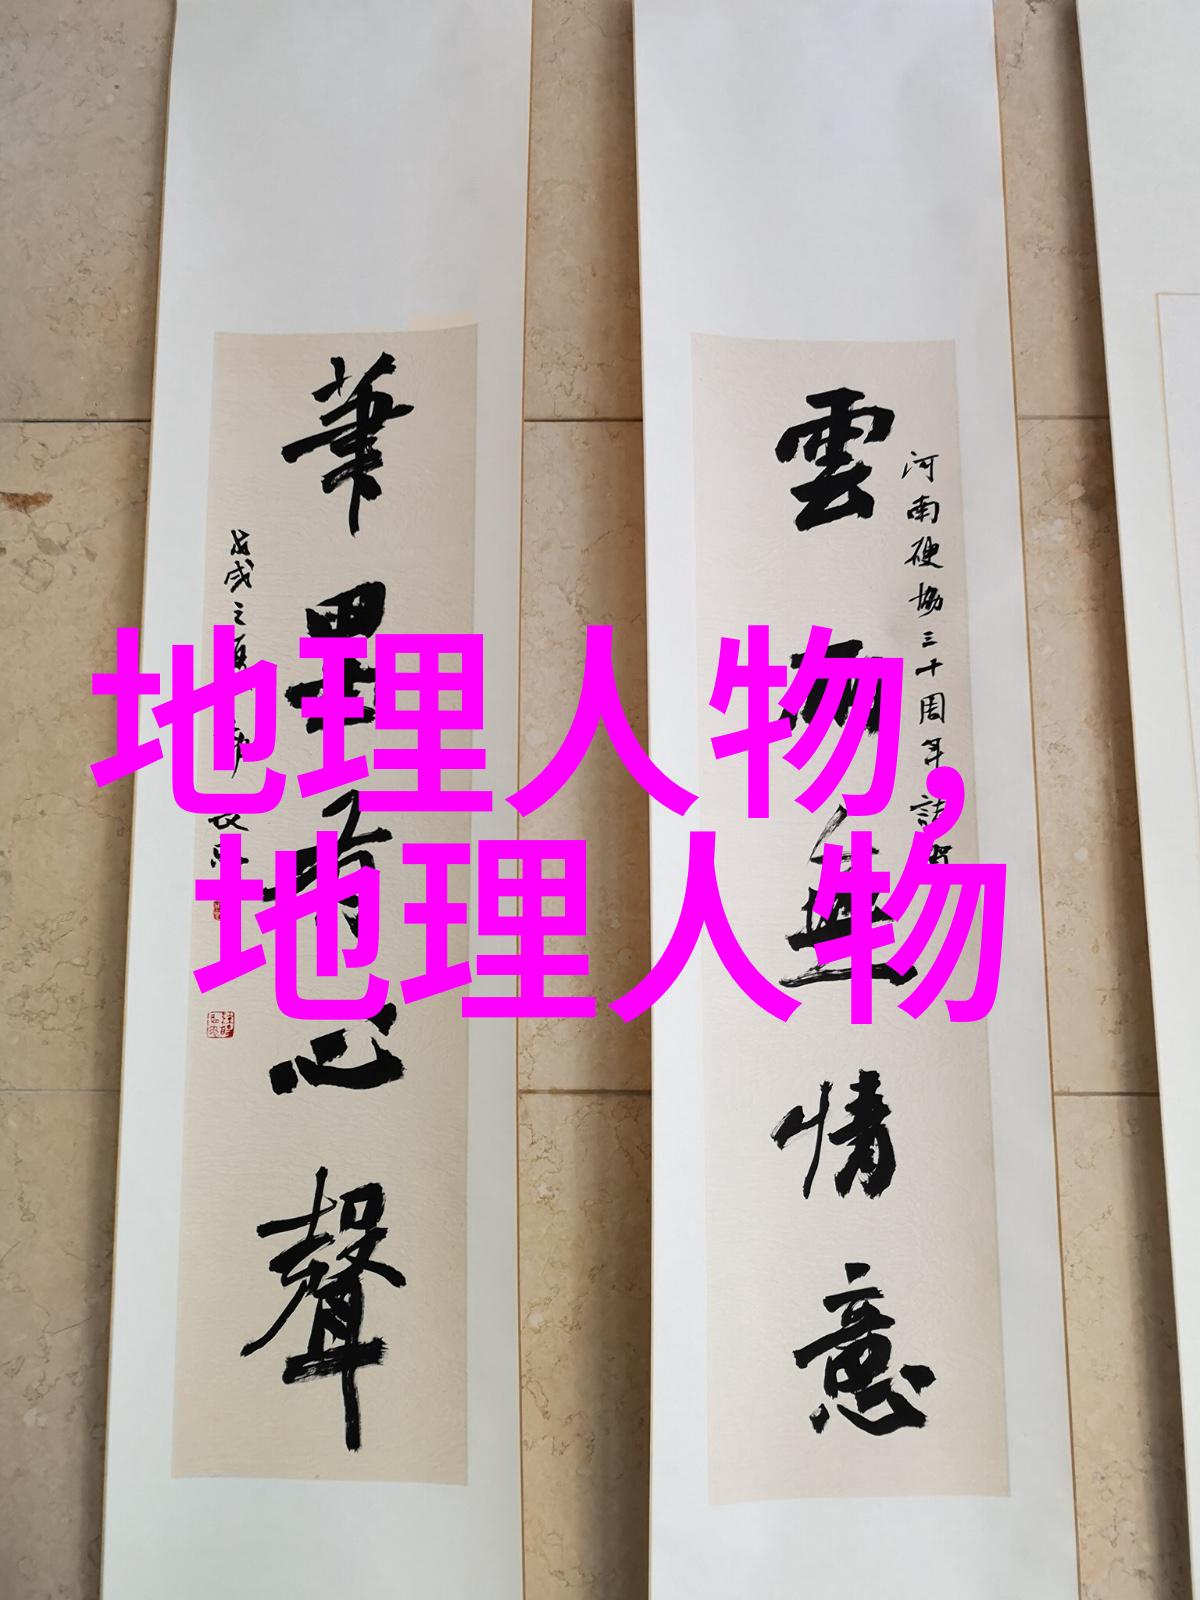 地理人物,
地理人物
河南硬協三十周年誌
雲雨無情意
筆墨有心聲
戊戌之夏